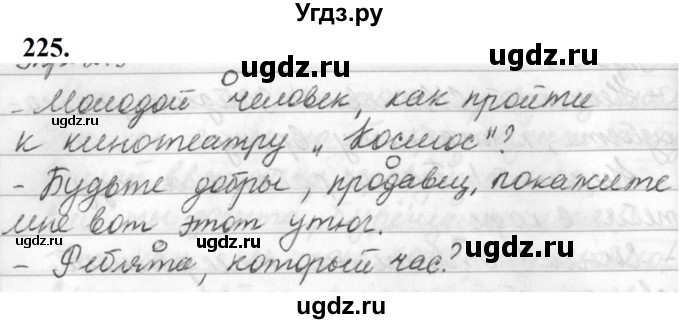 Угдз.ру
225.
ugdz.ru ugdz.ru
- Молодой человек, как пройти
ugdz.ru
к кинотеатру „Космос"?
ugdz.ru ugdz.ru
- Будьте добры, продавец, покажите
мне вот этот утюг.
ugdz.ru ugdz.ru
- Ребята, который час?
ugdz.ru